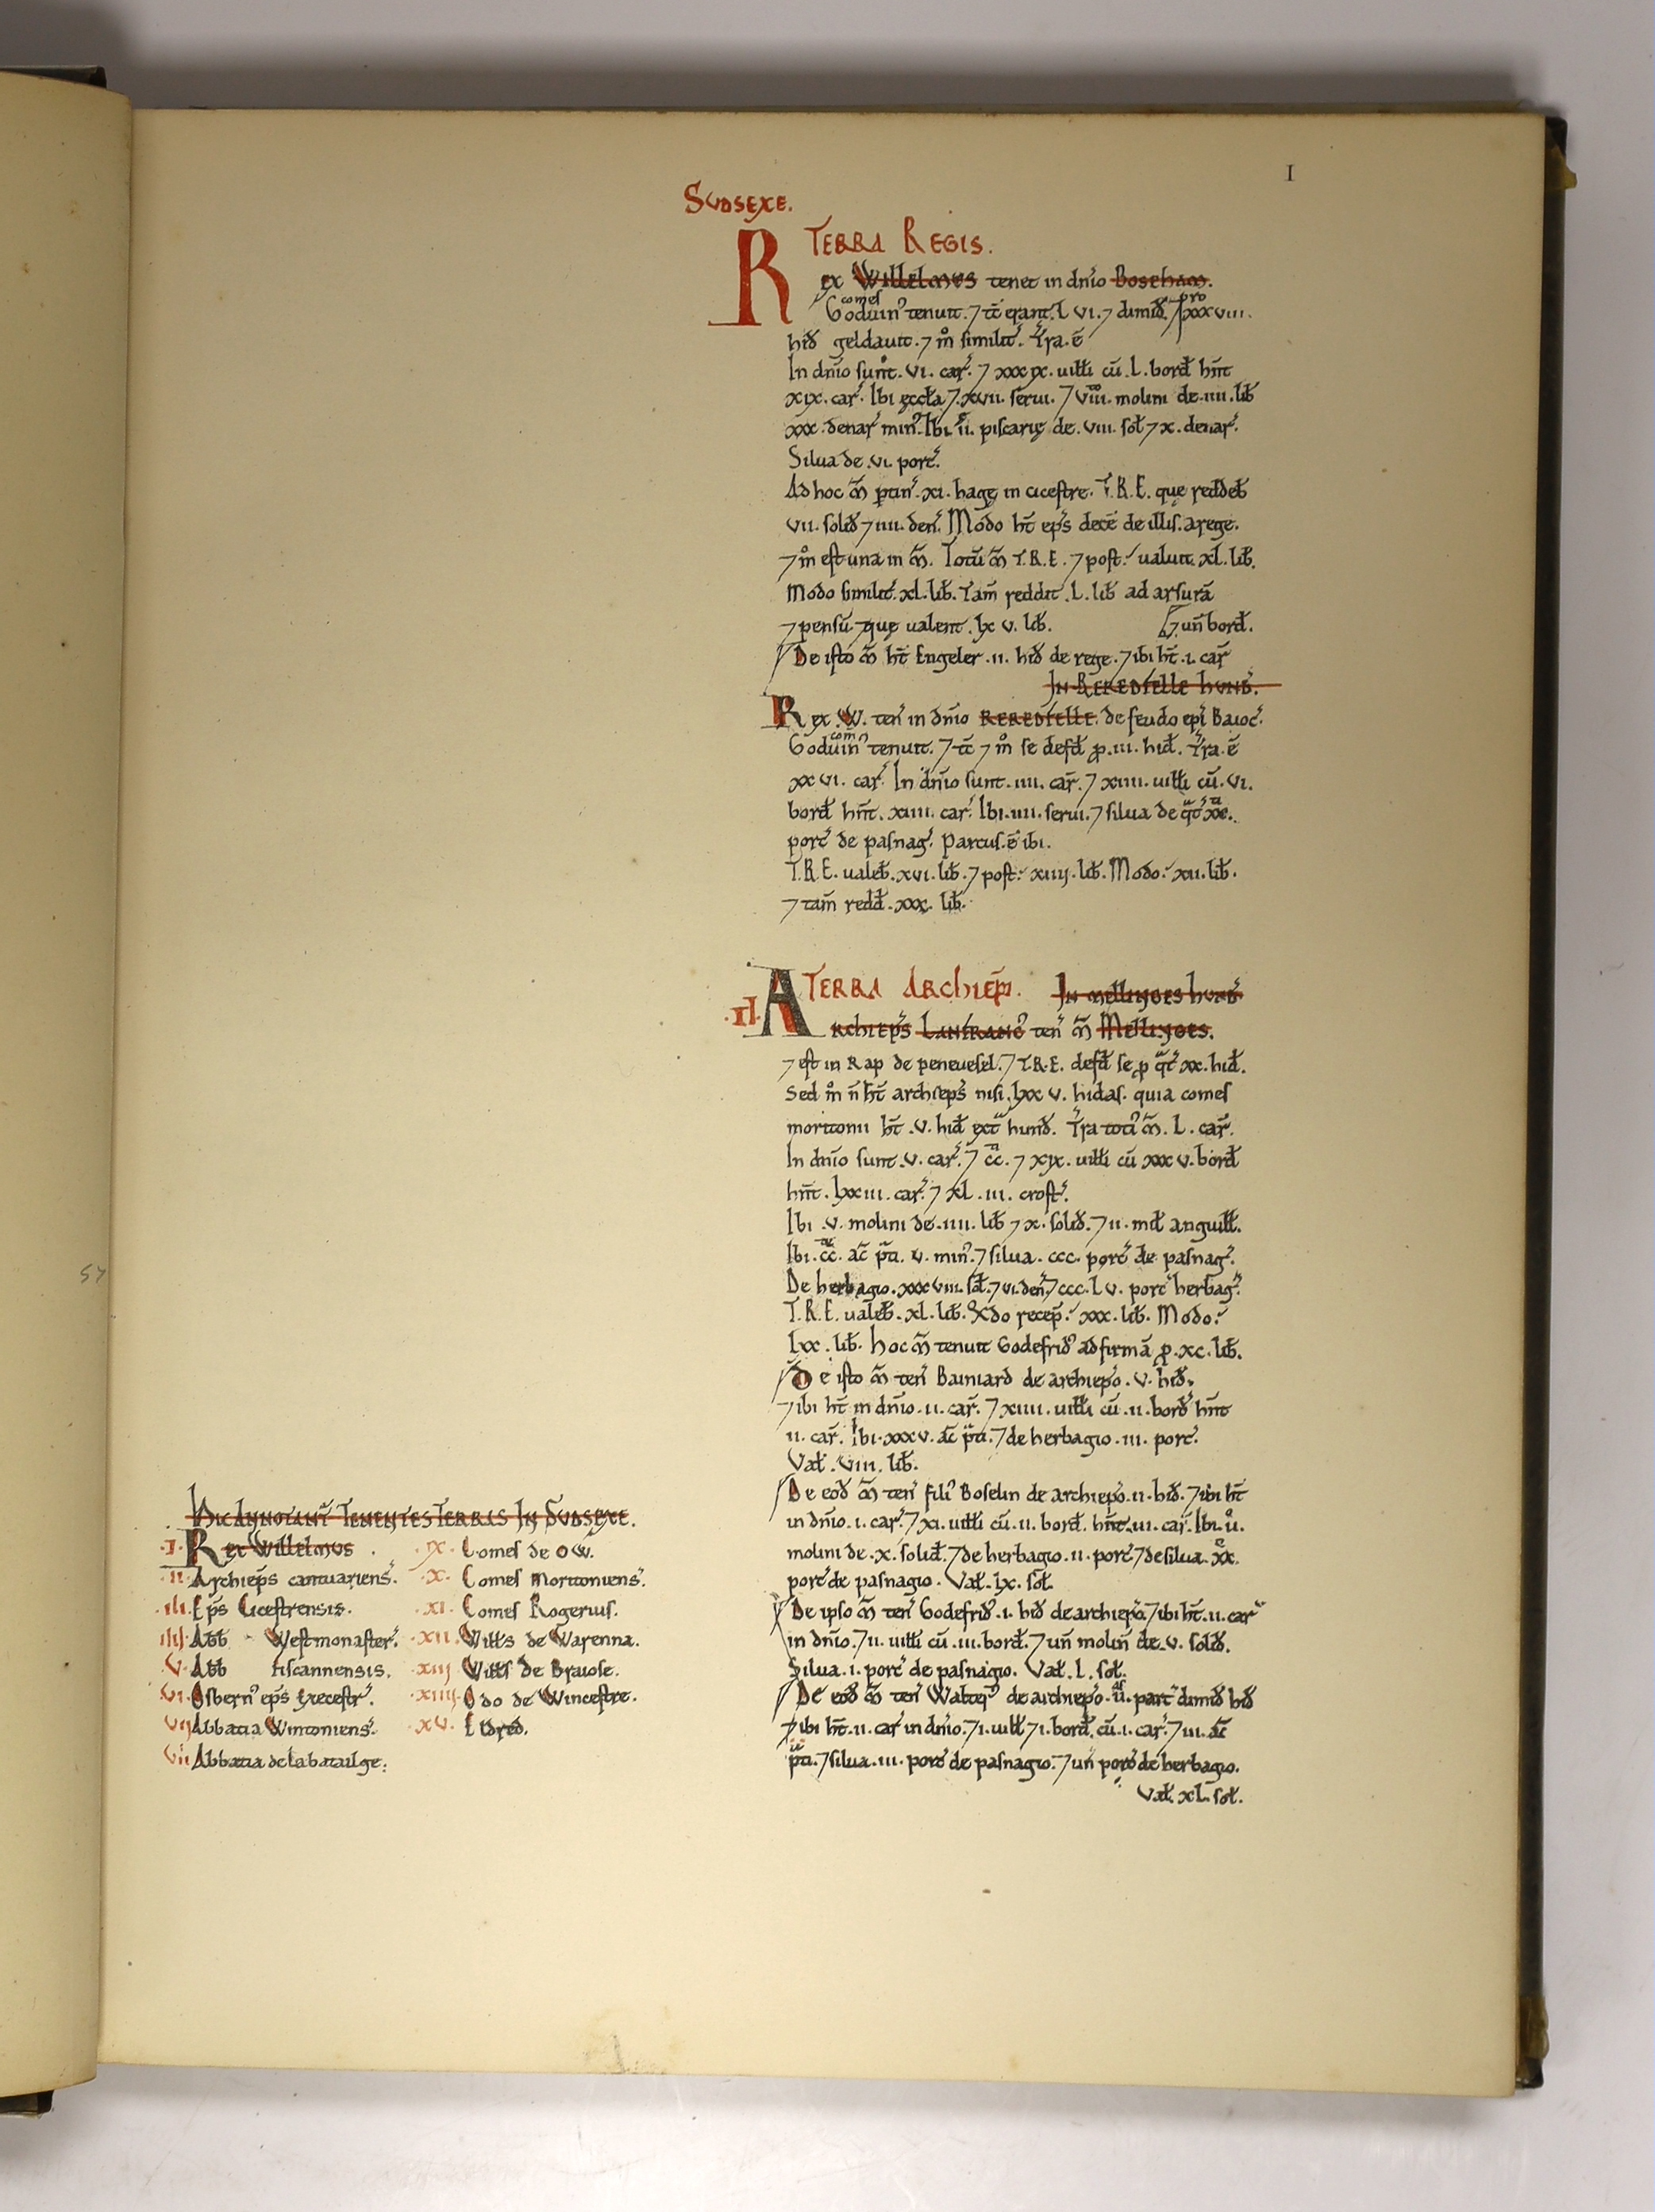 I
SUDSEXE.
TERRA REGIS.
Rex Willelmus tenet in dn̄io Boseham.
Goduin᾽ comes tenuit. ⁊ tc̄ erant. LVI. ⁊ dimid̄. ⁊ pro xxxviii.
hid̄ geldauit. ⁊ m̊ similit̄. Tr̄a. ē
In dn̄io sunt. VI. car̄. ⁊ xxxix. uilłi cū. L. bord̄ hn̄t
xix. car̄. Ibi ęccła ⁊ .xvii. serui. ⁊ VIII. molini de. iiii. lib̄
xxx. denar̄ min᾽. Ibi. ii. piscarię de. viii. soł ⁊ x. denar̄.
Silua de. vi. porc̄.
Ad hoc m̄ ptin̄. xi. hagę in cicestre. T.R.E. quę reddeb̄
vii. solid̄ ⁊ iiii. den̄. Modo ht̄ ep̄s decē de illis. a rege.
⁊ m̊ est una in m̄. Totū m̄ T.R.E. ⁊ post. ualuit. xl. lib̄.
Modo similit̄. xl. lib̄. Tam̄ reddit. L. lib̄ ad arsurā
⁊ pensū ⁊ quę ualent. lxv. lib̄. ⁊ un̄ bord̄.
De isto m̄ ht̄ Engeler. ii. hid̄ de rege. ⁊ ibi ht̄. i. car̄
In REREDFELLE HUND̄.
Rex. W. ten̄ in dn̄io REREDFELLE. de feudo ep̄i Baioc̄.
Goduin᾽ com̄ tenuit. ⁊ tc̄ ⁊ m̊ se defd̄ p. iii. hid̄. Tr̄a. ē
xxvi. car̄. In dn̄io sunt. iiii. car̄. ⁊ xiiii. uilłi cū. vi.
bord̄ hn̄t. xiiii. car̄. Ibi. iiii. serui. ⁊ silua de qͣt xxͭͥ.
porc̄ de pasnaḡ. Parcus. ē ibi.
T.R.E. ualeb̄. xvi. lib̄. ⁊ post. xiiij. lib̄. Modo. xii. lib̄.
⁊ tam̄ redd̄. xxx. lib̄.
TERRA ARCHIEP̄I. In MELLINGES HUND̄
.II. ARCHIEP̄S LANFRANC᾽ ten̄ m̄ MELLINGES.
⁊ est in Rap de peneuesel. ⁊ T.R.E. defd̄ se p qͣt xx. hid̄.
Sed m̊ n̄ ht̄ archiep̄s nisi. lxxv. hidas. quia comes
moritonii ht̄. v. hid̄ ext̄ hund̄. Tr̄a toti᾽ m̄. L. car̄.
In dn̄io sunt. v. car̄. ⁊ cc. ⁊ xix. uilłi cū xxxv. bord̄
hn̄t. lxxiii. car̄. ⁊ xl.iii. croft̄.
Ibi. v. molini de. iiii. lib̄ ⁊ x. solid̄. ⁊ ii. mił anguilł.
Ibi. cc. ac̄ p̄ti. v. min᾽. ⁊ silua. ccc. porc̄ de pasnaḡ.
De herbagio. xxxviii. soł. ⁊ vi. den̄. ⁊ ccc.lv. porc̄ herbaḡ.
T.R.E. ualeb̄. xl. lib̄. Qdo recep̄. xxx. lib̄. Modo.
lxx. lib̄. Hoc m̄ tenuit Godefrid᾽ ad firmā p. xc. lib̄.
De isto m̄ ten̄ Bainiard de archiep̄o. v. hid̄.
⁊ ibi ht̄ in dn̄io. ii. car̄. ⁊ xiiii. uilłi cū. ii. bord̄ hn̄t
ii. car̄. Ibi. xxxv. ac̄ p̄ti. ⁊ de herbagio. iii. porc̄.
Vał. viii. lib̄.
De eod̄ m̄ ten̄ fili᾽ Boselin de archiep̄o. ii. hid̄. ⁊ ibi ht̄
in dn̄io. i. car̄. ⁊ xi. uilłi cū. ii. bord̄. hn̄t. iii. car̄. Ibi. ii.
molini de. x. solid̄. ⁊ de herbagio. ii. porc̄ ⁊ de silua. xx.
porc̄ de pasnagio. Vał. lx. soł.
De ipso m̄ ten̄ Godefrid᾽. i. hid̄ de archiep̄o. ⁊ ibi ht̄. ii. car̄
in dn̄io. ⁊ ii. uilłi cū. iii. bord̄. ⁊ un̄ molin̄ de. v. solid̄.
Silua. i. porc̄ de pasnagio. Vał. L. soł.
De eod̄ m̄ ten̄ Walteri᾽ de archiep̄o. ii. part̄ dimid̄ hid̄
⁊ ibi ht̄. ii. car̄ in dn̄io. ⁊ i. uilł ⁊ i. bord̄. cū. i. car̄. ⁊ iii. ac̄
p̄ti. ⁊ silua. iii. porc̄ de pasnagio. ⁊ un̄ porc̄ de herbagio.
Vał. xl. soł.
HIC ANNOTANT̄ TENENTES TERRAS IN SUDSEXE.
.I. REX WILLELMUS.
.II. Archiep̄s cantuariens̄.
.III. Ep̄s Cicestrensis.
.IIII. Abb̄ Westmonaster̄.
.V. Abb̄ fiscannensis.
.VI. Osbern᾽ ep̄s Execestr̄.
VII. Abbatia Wintoniens̄.
VIII. Abbatia de Labatailge.
.IX. Comes de Ow.
.X. Comes Moritoniens̄.
.XI. Comes Rogerius.
.XII. Wills̄ de Warenna.
.XIII. Wills̄ de Braiose.
.XIIII. Odo de Wincestre.
.XV. Eldred.
57